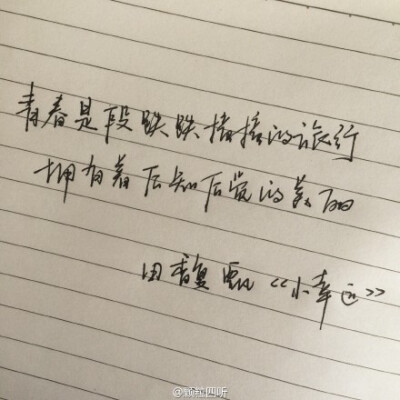 青春是段跌跌撞撞的旅行
拥有着后知后觉的美丽
田馥甄《小幸运》